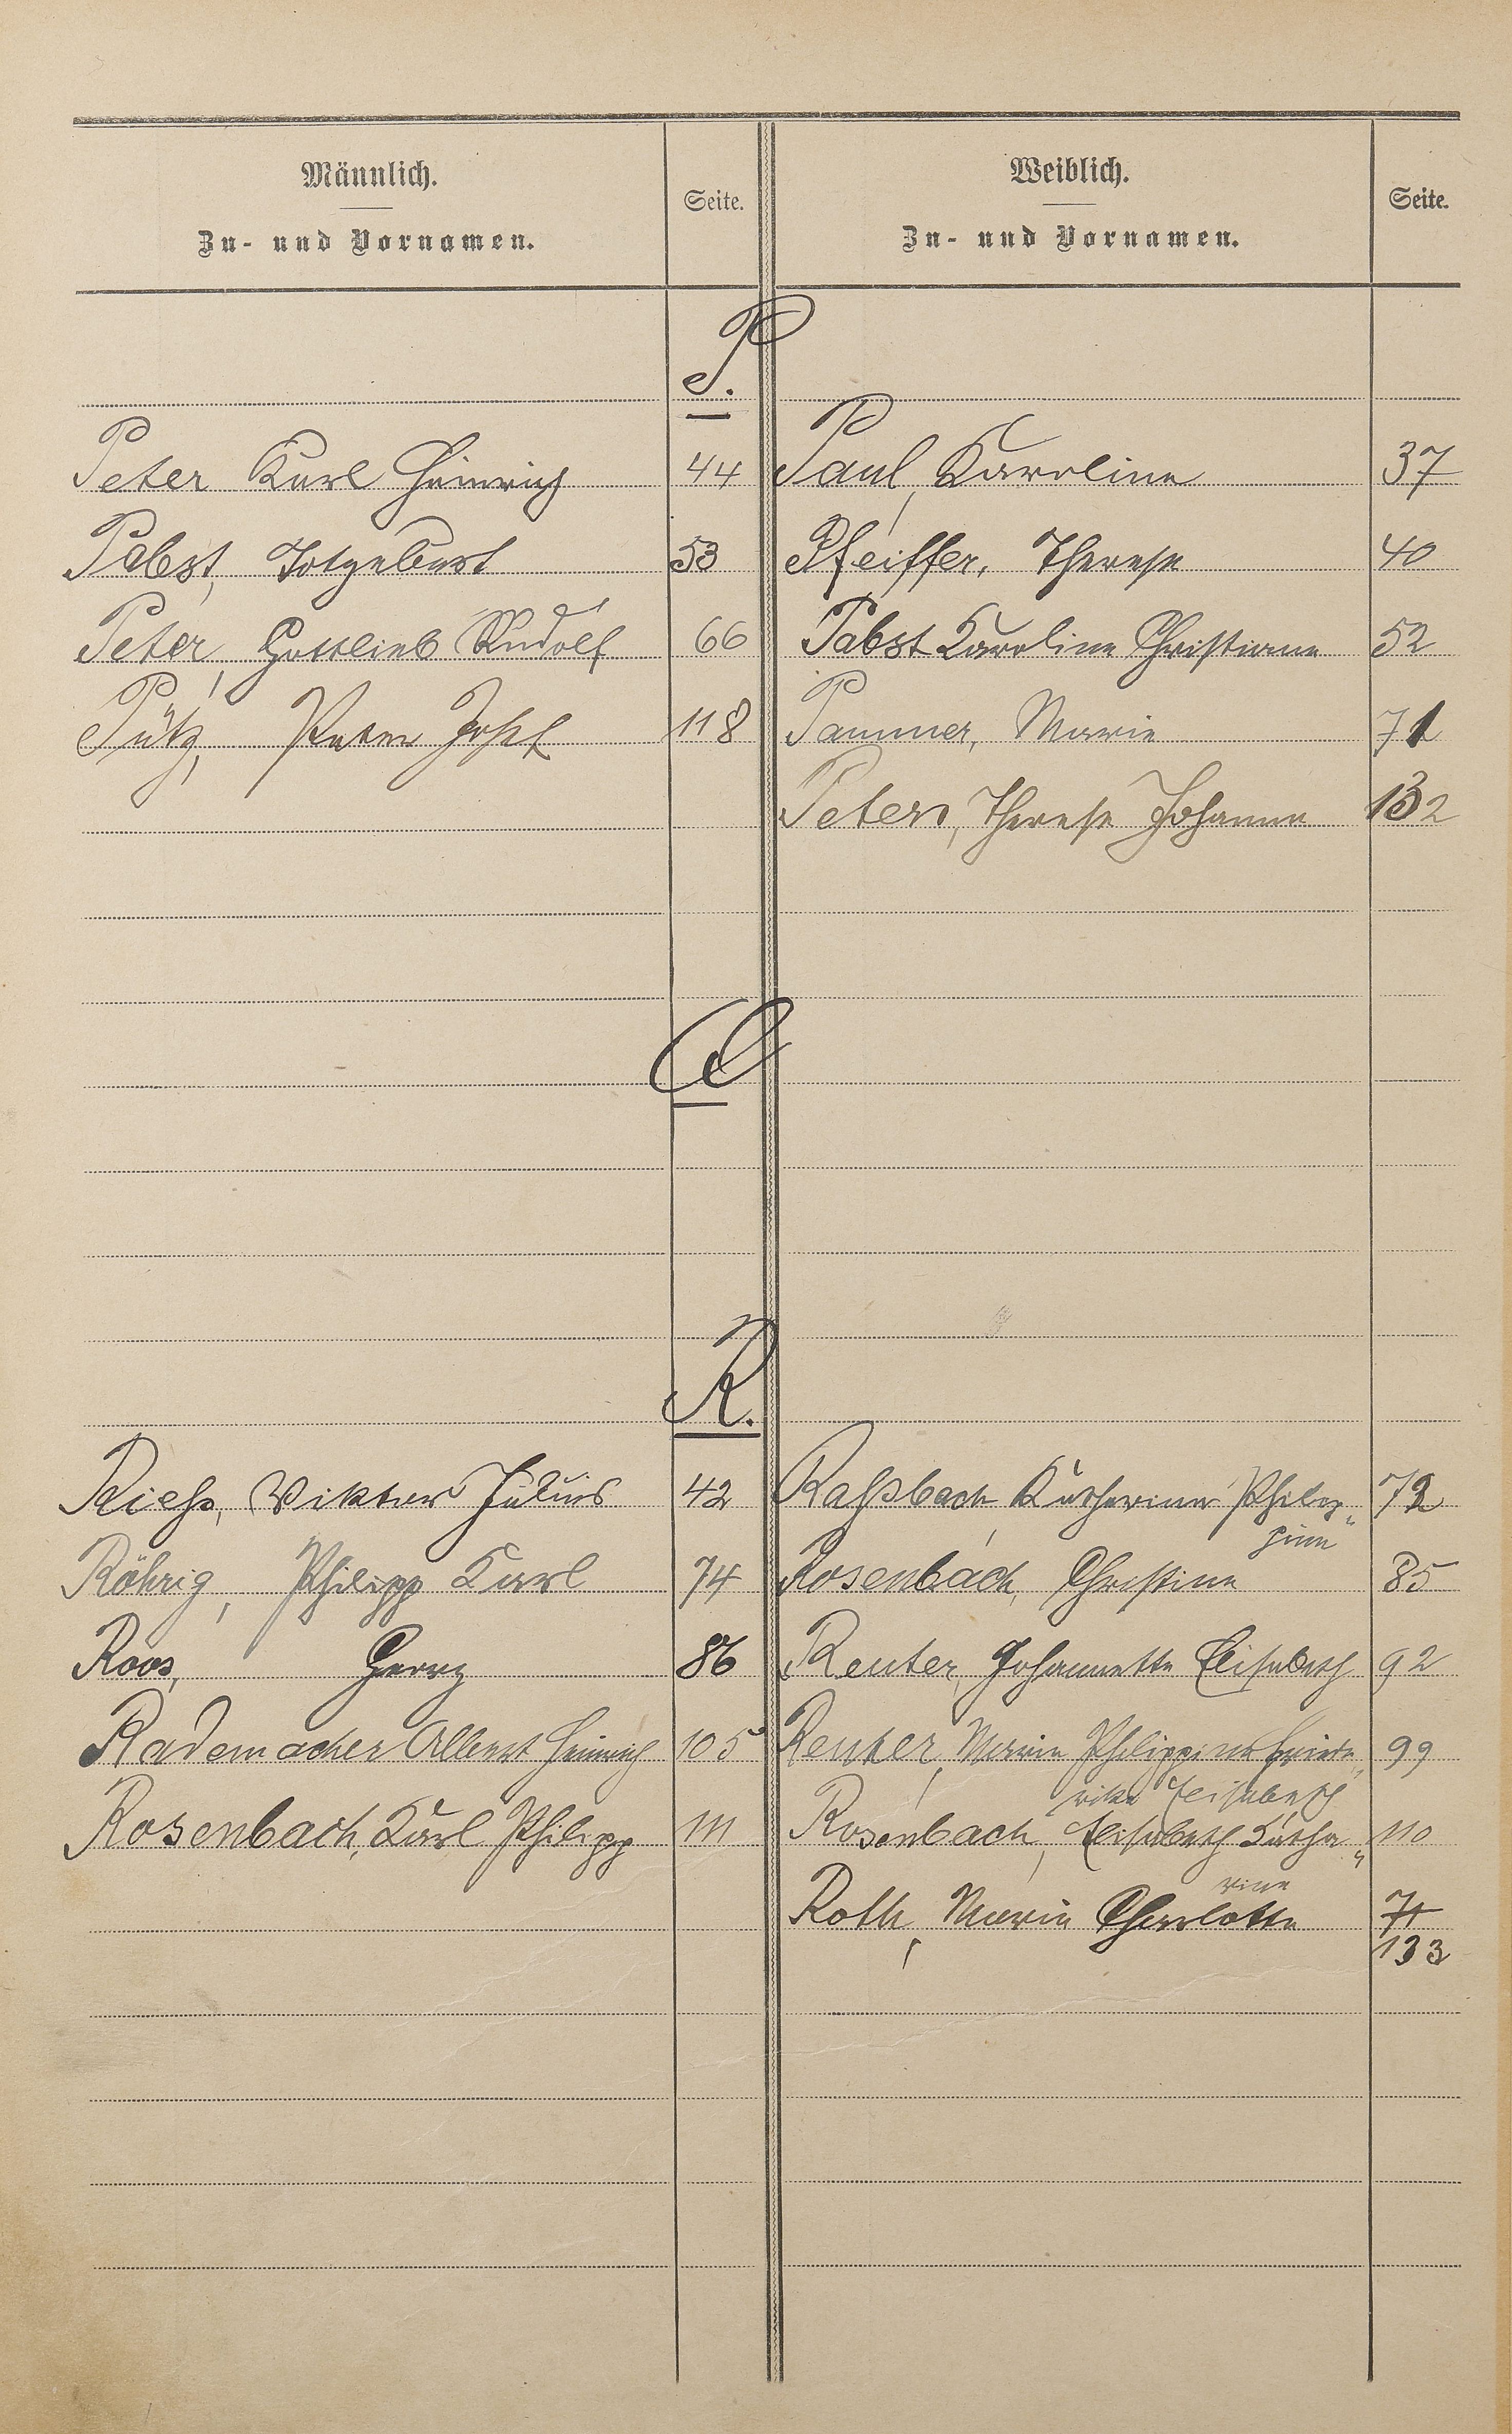 Männlich.
Zu- und Vornamen.
Seite.
Weiblich.
Zu- und Vornamen.
Seite.
P.
Peter Karl Heinrich 44 Paul, Karoline 37
Pabst, Totgeburt 53 Pfeiffer, Therese 40
Peter, Gottlieb Rudolf 66 Pabst Karoline Christiane 52
Pütz, Peter Josef 118 Pammer, Marie 71
Peters, Therese Johanna 132
Q
R.
Riehs, Viktor Julius 42 Raßbach Katharina Philip„ 72
pine
Röhrig, Philipp Karl 74 Rosenbach, Christine 85
Roos, Georg 86 Reuter, Johannette Elisabeth 92
Rademacher Albert Heinrich 105 Reuter, Marie Philippine Friede„ 99
rike Elisabeth
Rosenbach, Karl Philipp 111 Rosenbach, Elisabeth Katha„ 110
rine
Roth, Marie Charlotte 71
133